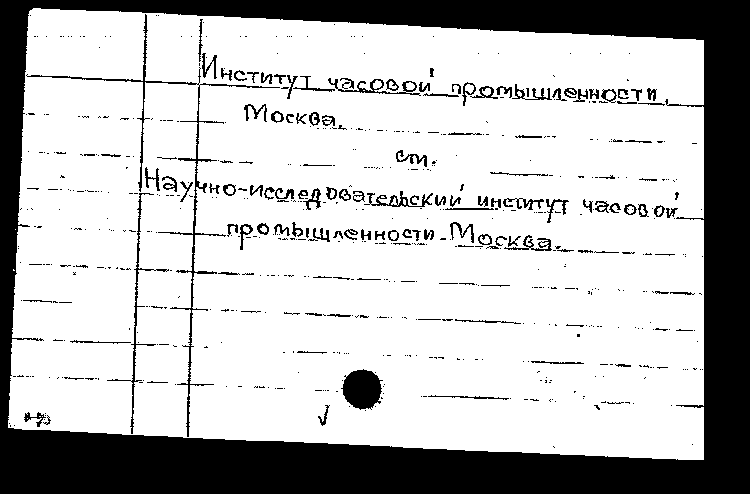 Институт часовой промышленности,
Москва.
см.
Научно-исследовательский институт часовой
промышленности. Москва.